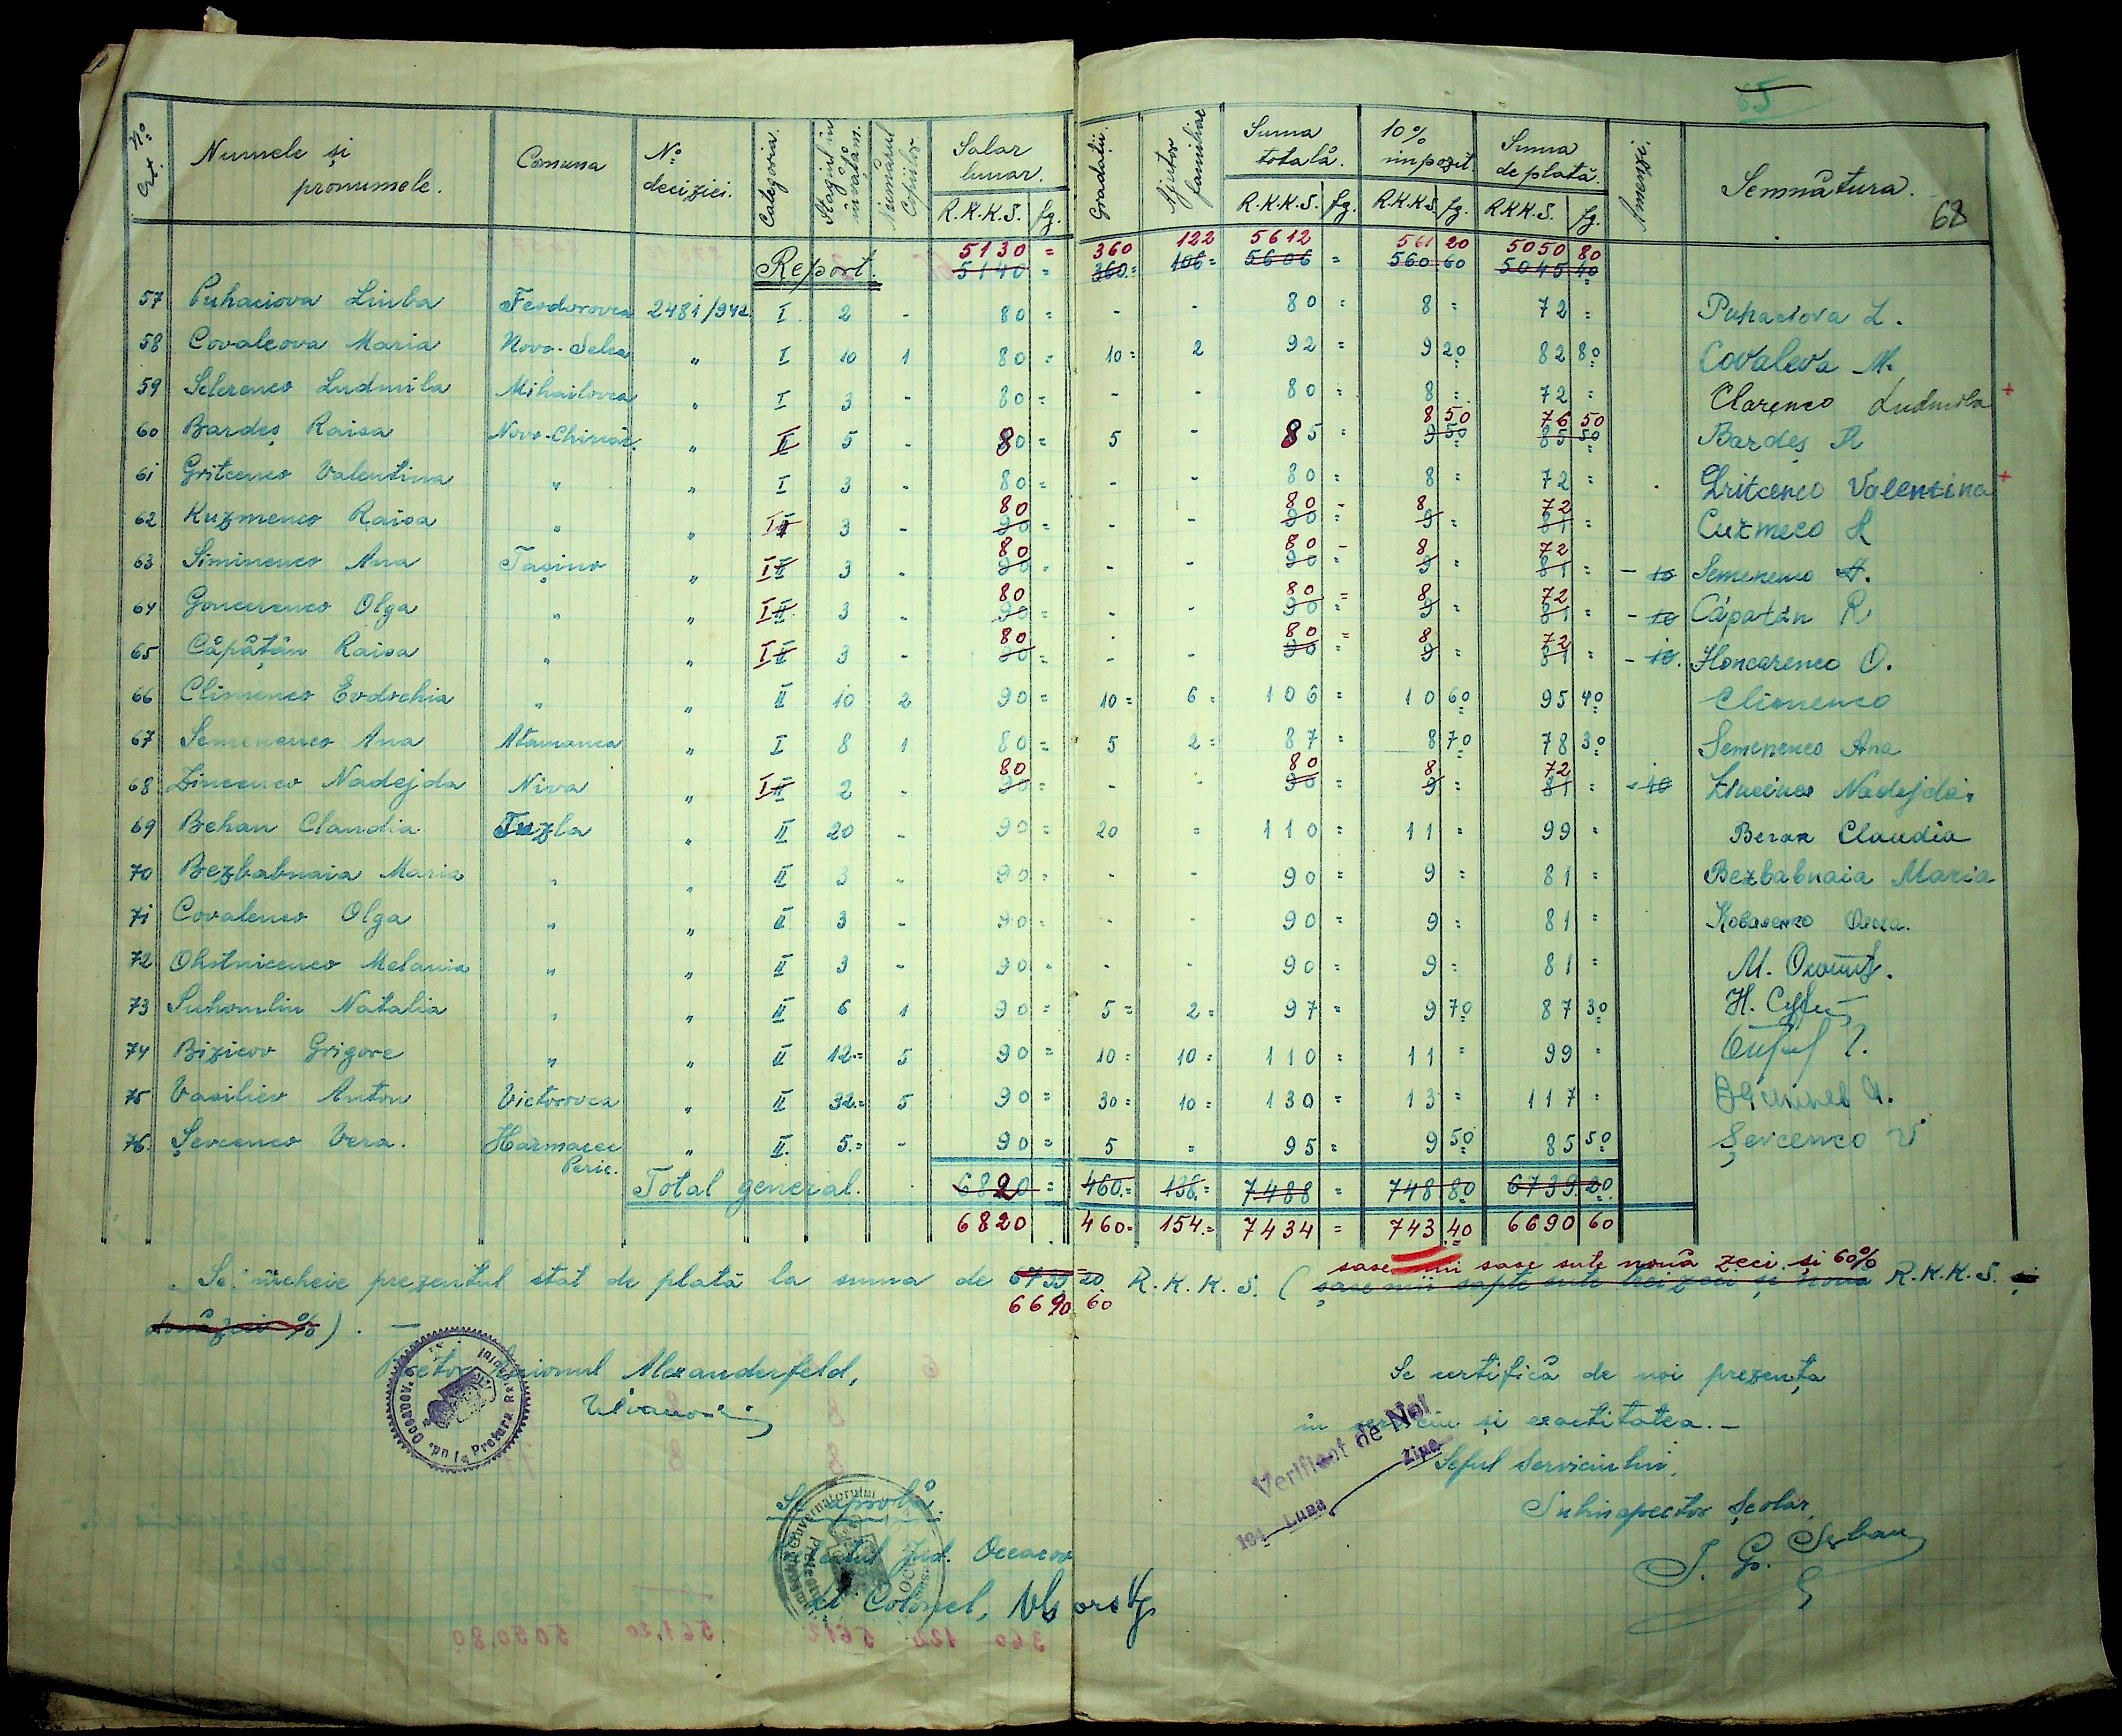 65
No. Crt. | Numele și pronumele. | Comuna | No. deciziei. | Categoria. | Stagiul în învățăm. | Numărul Copiilor | Salar lunar. R.K.K.S. fg. | Gradații. | Ajutor familiar | Suma totală. R.K.K.S. fg. | 10% impozit. R.K.K.S. fg. | Suma de plată. R.K.K.S. fg. | Amenzi. | Semnătura.
68
5130 = 360 122 5612 561 20 5050 80
Report. 5140 = 360= 106= 5606 = 560 60 5045 40
57 Puhaciova Liuba Feodorovca 2481/942 I 2 - 80 = - - 80 = 8 = 72 = Puhaciova L.
58 Covaleova Maria Novo-Selca " I 10 1 80 = 10= 2 92 = 9 20 82 80 Covaleva M.
59 Sclerenco Ludmila Mihailovca " I 3 - 80 = - - 80 = 8 = 72 = Clarenco Ludmila +
8 50 76 50
60 Bardeș Raisa Novo-Chiriac. " II 5 - 80 = 5 - 85 = 9 50 85 50 Bardeș R
61 Gritcenco Valentina " " I 3 - 80 = - - 80 = 8 = 72 = Gritcenco Valentina +
80 80 - 8 72
62 Kuzmenco Raisa " " I II 3 - 90 = - - 90 = 9 = 81 = Cuzmeco R
80 80 - 8 72
63 Siminenco Ana Tașino " I II 3 - 90 = - - 90 = 9 = 81 = - 10 Semenenco A.
80 80 = 8 72
64 Goncerenco Olga " " I II 3 - 90 = - - 90 = 9 = 81 = - 10 Căpatăn R
80 80 = 8 72
65 Căpățân Raisa " " I II 3 - 90 = - - 90 = 9 = 81 = - 10. Honcarenco O.
66 Climenco Evdochia " " II 10 2 90 = 10= 6= 106 = 10 60 95 40 Climenco
67 Semenenco Ana Atamanca " I 8 1 80 = 5 2= 87 = 8 70 78 30 Semenenco Ana
80 80 8 72
68 Zincenco Nadejda Niva " I II 2 - 90 = - - 90 = 9 = 81 = - 10 Zincinco Nadejda
69 Behan Claudia Tuzla " II 20 - 90 = 20 = 110 = 11 = 99 = Beran Claudia
70 Bezbabnaia Maria " " II 3 - 90 = - - 90 = 9 = 81 = Bezbabnaia Maria
71 Covalenco Olga " " II 3 - 90 = - - 90 = 9 = 81 = Коваленко Ольга.
72 Ohotnicenco Melania " " II 3 - 90 = - - 90 = 9 = 81 = М.
73 Suhomlin Natalia " " II 6 1 90 = 5= 2= 97 = 9 70 87 30 Н.
74 Bizicov Grigore " " II 12= 5 90 = 10= 10= 110 = 11 = 99 =
75 Vasiliev Anton Victorovca " II 32= 5 90 = 30= 10= 130 = 13 = 117 =
76. Șevcenco Vera. Harmacec Peric. " II. 5.= - 90 = 5 = 95 = 9 50 85 50 Șevcenco V
Total general. 6820 = 460.= 136.= 7488 = 748 80 6739 20
6820 460= 154.= 7434 = 743 40 6690 60
sase mii sase sute nouă zeci și 60%
Se încheie prezentul stat de plată la suma de 6739 20 R.K.K.S. (șase mii șapte sute treizeci și nouă R.K.K.S. și
6690. 60
douăzeci %). —
Pretor Raionul Alexanderfeld,
Se certifică de noi prezența
în serviciu și exactitatea.—
Verificat de Noi
194 Luna Ziua
Șeful Serviciului,
Subinspector Școlar,
Se aprobă.
Prefectul Jud. Oceacov
Lt Colonel,